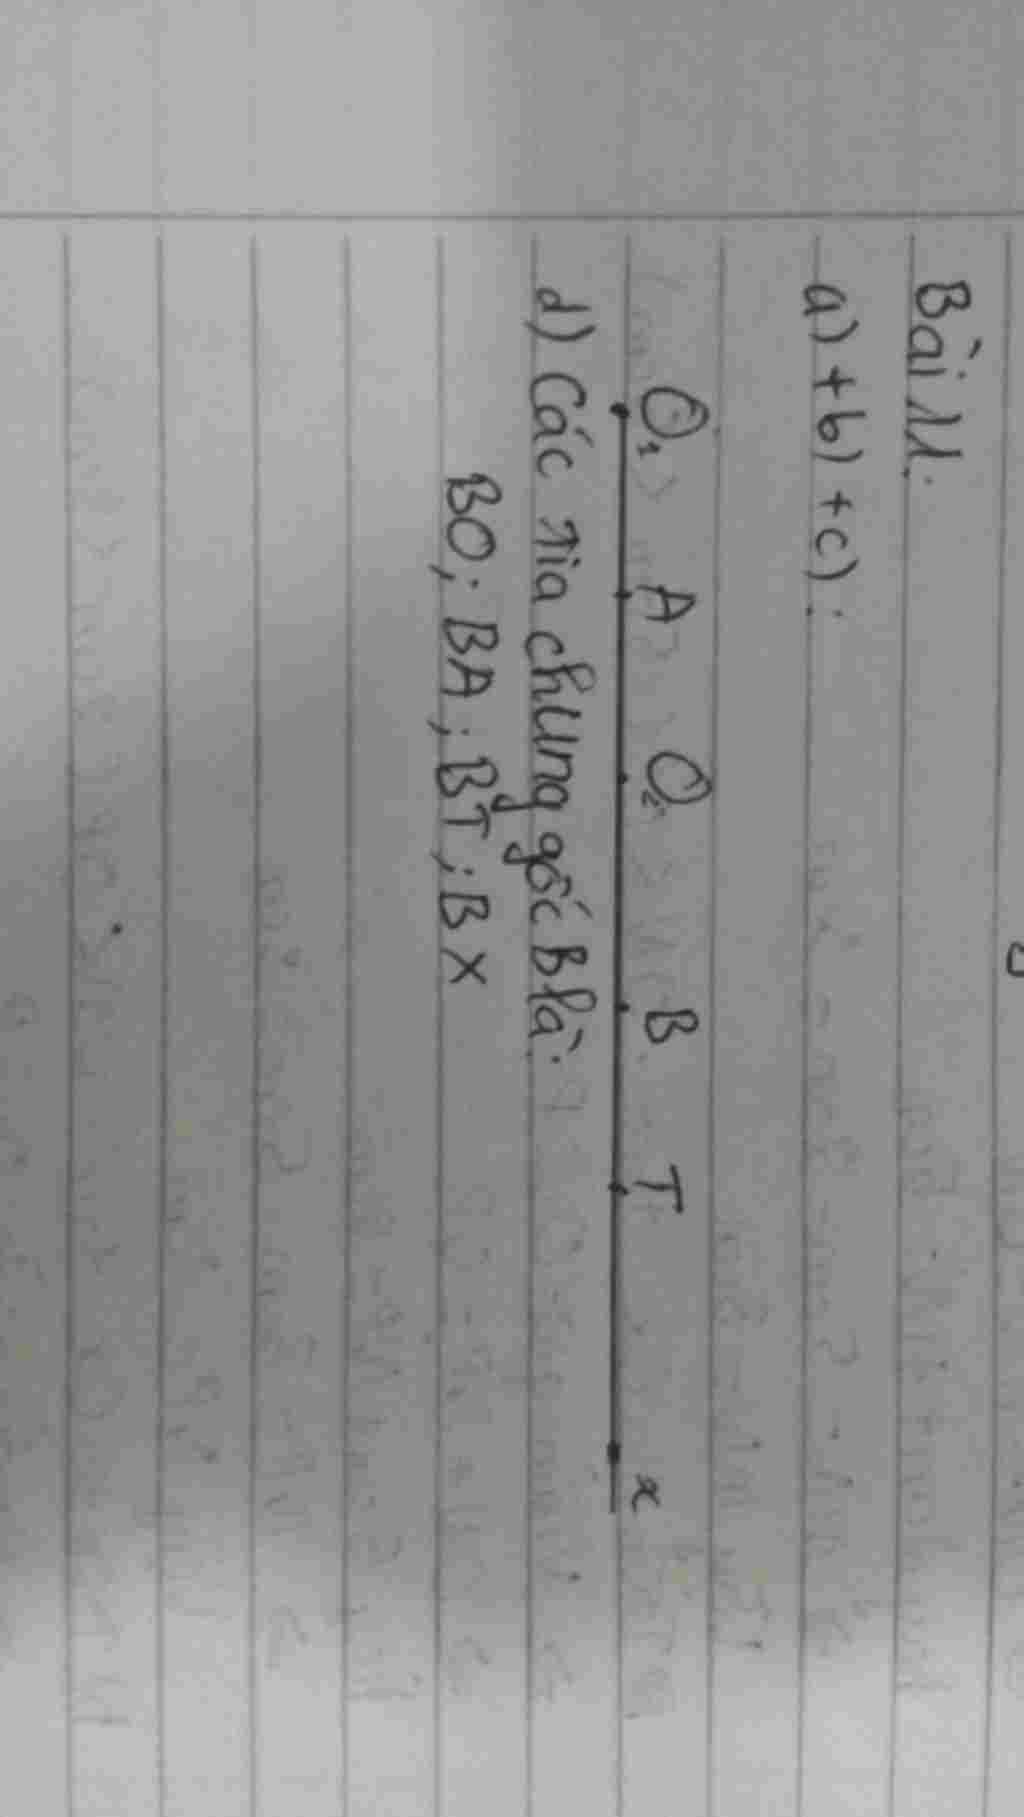 Bài 11:
a) + b) + c) :
O₁ A O₂ B T x
d) Các tia chung gốc B là:
BO; BA; BT; Bx